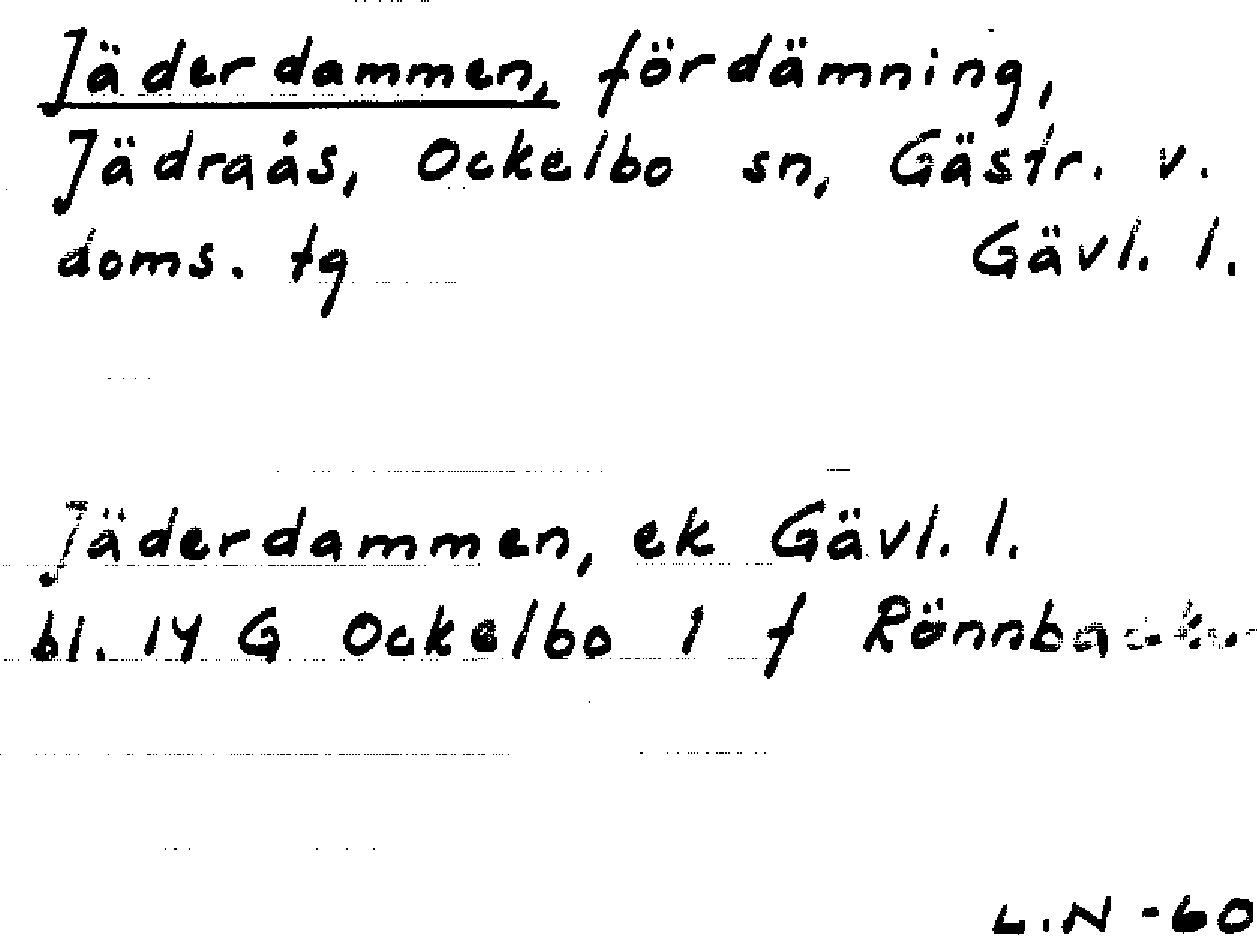 Jäderdammen, fördämning,
Jädraås, Ockelbo sn, Gästr. v.
doms. tg Gävl. l.
Jäderdammen, ek Gävl. l.
bl. 14 G Ockelbo 1 f
L.N -60